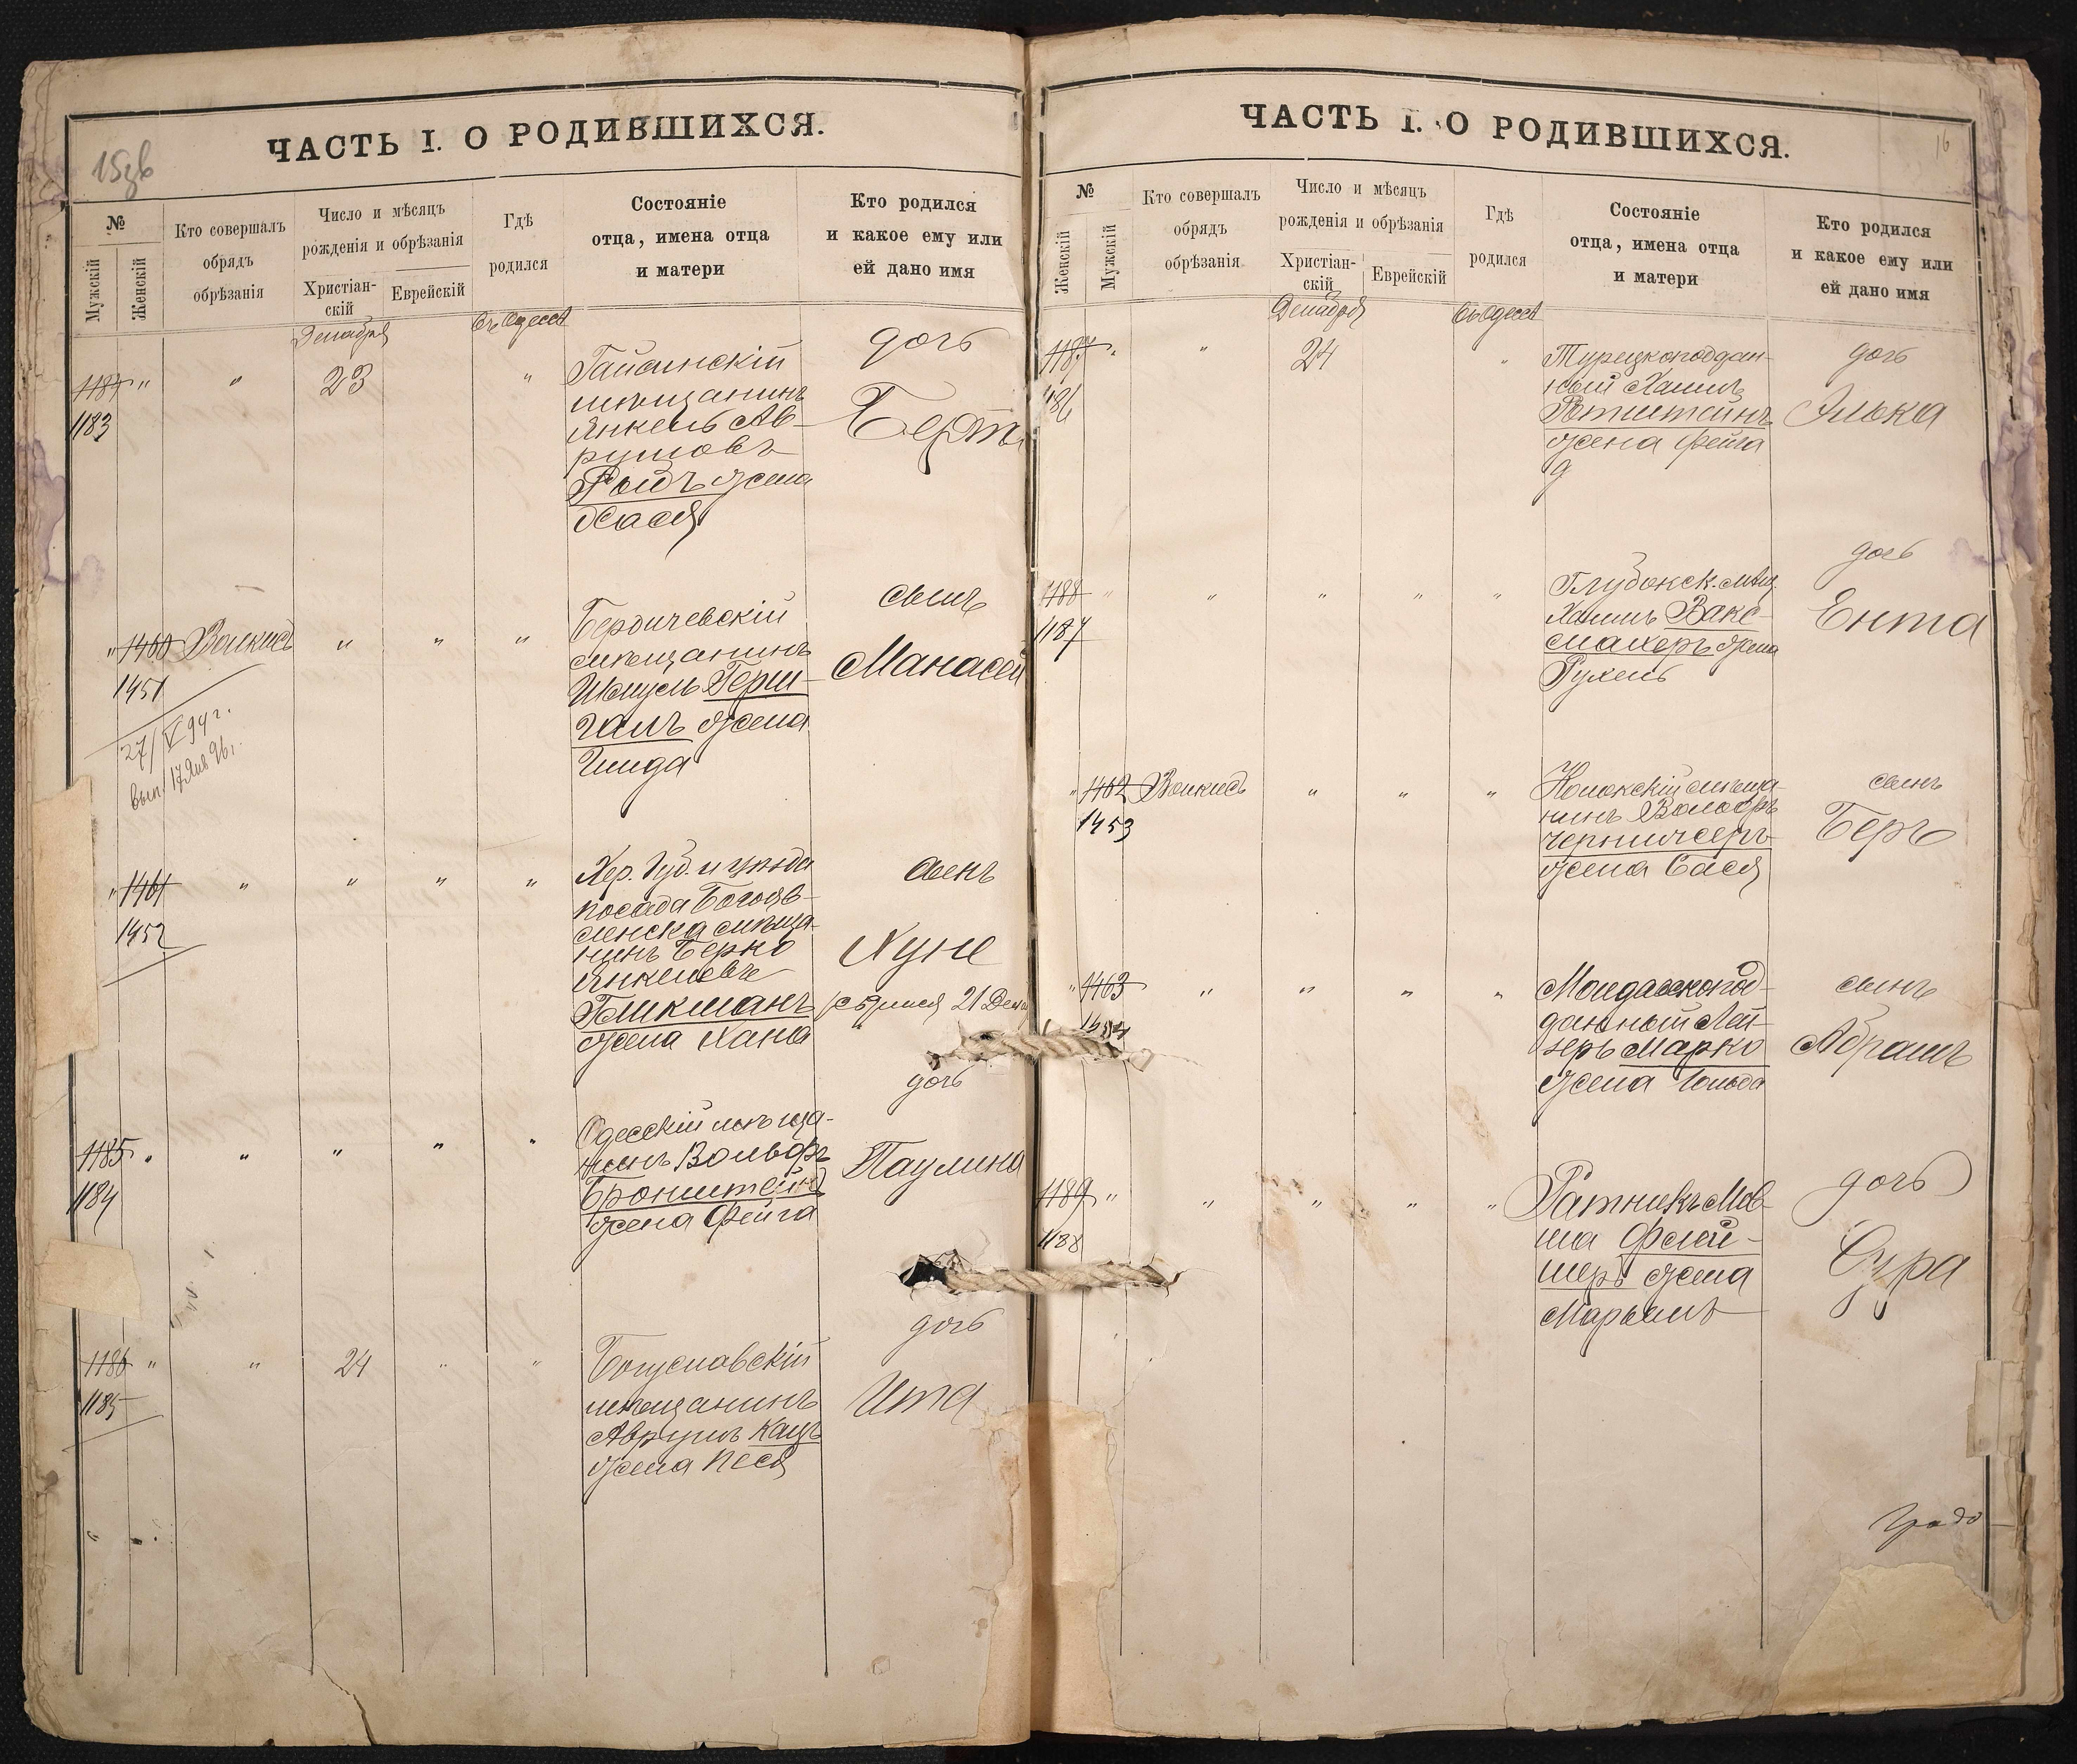 15зв
ЧАСТЬ I. О РОДИВШИХСЯ.
№
Мужскій
Женскій
Кто совершалъ
обрядъ
обрѣзанія
Число и мѣсяцъ
рожденія и обрѣзанія
Христіан-
скій
Еврейскій
Гдѣ
родился
Состояніе
отца, имена отца
и матери
Кто родился
и какое ему или
ей дано имя
Декабря
Въ Одессѣ
1184 "
1183
"
23
"
Гайсинскій
мѣщанинъ
Янкель Ав-
румовъ
жена
Хася
дочь
Берта
" 1460
1451
27/V 94 г.
вып. 17 Янв 96 г.
"
"
"
Бердичевскій
мѣщанинъ
Шмуль Герш-
гамъ жена
сынъ
Манасей
" 1461
1452
"
"
"
"
Хер. Губ. и уѣзда
посада Богояв-
ленска мѣща-
нинъ Берко
Янкелевъ
Бликманъ
жена Хана
сынъ
Хуне
21 Дек
1185 "
1184
"
"
"
"
Одесскій мѣща-
нинъ Вольфъ
Бронштейнъ
жена Фейга
дочь
Паулина
1186 "
1185
"
24
"
"
Богуславскій
мѣщанинъ
Аврумъ Кацъ
жена Песя
дочь
Ита
16
ЧАСТЬ I. О РОДИВШИХСЯ.
№
Женскій
Мужскій
Кто совершалъ
обрядъ
обрѣзанія
Число и мѣсяцъ
рожденія и обрѣзанія
Христіан-
скій
Еврейскій
Гдѣ
родился
Состояніе
отца, имена отца
и матери
Кто родился
и какое ему или
ей дано имя
Декабря
Въ Одессѣ
1187 "
1186
"
24
"
Турецкоподдан-
ный Хаимъ
Ротштейнъ
жена Фейга
дочь
Элька
1188 "
1187
"
"
"
"
Хаимъ Вакс-
махеръ жена
Рухель
дочь
Ента
" 1462
1453
"
"
"
мѣща-
нинъ Вольфъ
жена Бася
сынъ
Беръ
" 1463
1454
"
"
"
"
Молдавскопод-
данный Лей-
зеръ Марко
жена Гольда
сынъ
Абрамъ
1189 "
1188
"
"
"
"
Ратникъ Мов-
ша Флей-
шеръ жена
Марьямъ
дочь
Сура